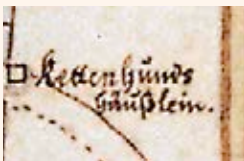 Kettenhunds
häußlein.